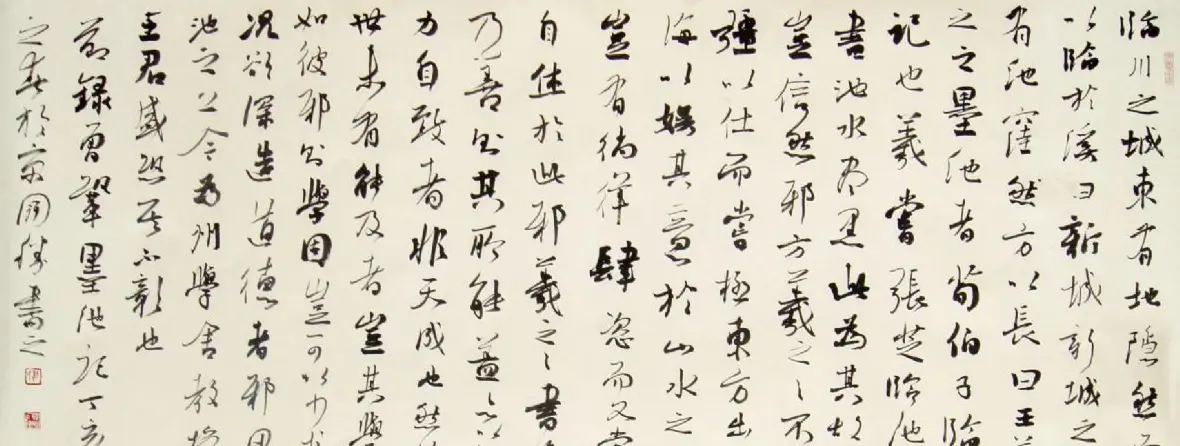 臨川之城東有地隱然
以臨於溪曰新城新城之
有池窪然方以長曰王
之之墨池者荀伯子臨
記也羲嘗張芝臨池
書池水盡黑此為其故
豈信然邪方羲之之不
彊以仕而嘗極東方出
海以娛其意於山水之
豈有徜徉肆恣而又嘗
自休於此邪羲之之書
乃善則其所能蓋亦
力自致者非天成也然
世未有能及者豈其學
如彼邪則學固豈可以少
況欲深造道德者邪
池之上今為州學舍教
王君盛恐其不彰也
節錄曾鞏墨池記丁亥
之春於京國偉書之